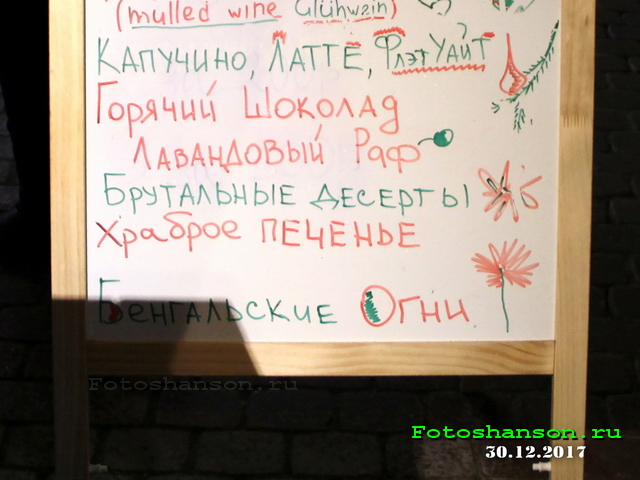 (mulled wine Glühwein)
Капучино, Латте, Флэт Уайт
Горячий Шоколад
Лавандовый Раф
Брутальные десерты
Храброе печенье
Бенгальские Огни
Fotoshanson.ru
Fotoshanson.ru
30.12.2017